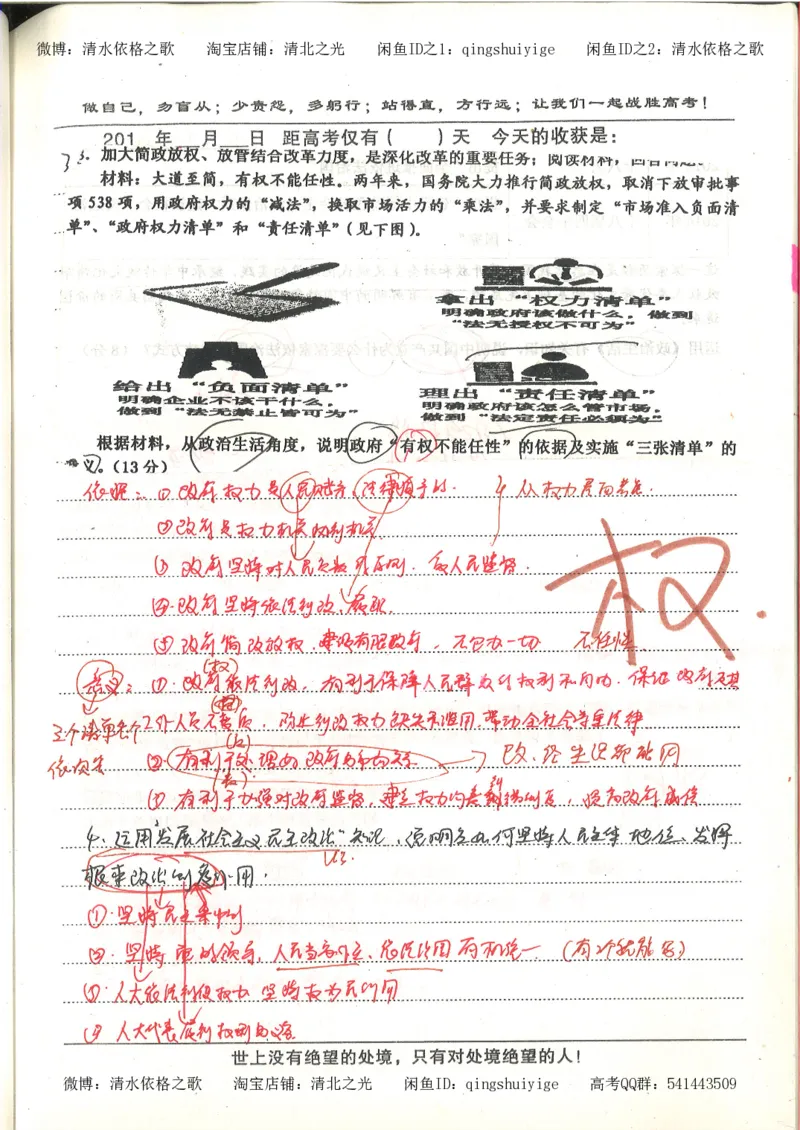 微博：清水依格之歌 淘宝店铺：清北之光 闲鱼ID之1：qingshuiyige 闲鱼ID之2：清水依格之歌
做自己，勿盲从；少责怨，多躬行；站得直，方行远；让我们一起战胜高考！
201 年 月 日 距高考仅有（ ）天 今天的收获是：
3．加大简政放权、放管结合改革力度，是深化改革的重要任务；阅读材料，回答问题。
材料：大道至简，有权不能任性。两年来，国务院大力推行简政放权，取消下放审批事
项538项，用政府权力的“减法”，换取市场活力的“乘法”，并要求制定“市场准入负面清
单”、“政府权力清单”和“责任清单”（见下图）。
拿出“权力清单”
明确政府该做什么，做到
“法无授权不可为”
给出“负面清单”
明确企业不该干什么，
做到“法无禁止皆可为”
理出“责任清单”
明确政府该怎么管市场，
做到“法定责任必须为”
根据材料，从政治生活角度，说明政府“有权不能任性”的依据及实施“三张清单”的
义。（13分）
依据：①政府权力是人民赋予、法律授予的． 从权力层面考虑．
②政府是权力机关的执行机关
③政府坚持对人民负责的原则．受人民监督．
④政府坚持依法行政、履职
⑤政府简政放权，建设有限政府，不包办一切 不任性
权．
意义：①政府依法行政，有利于保障人民群众的权利和自由．保证政府
（权）
防止行政权力缺失和滥用，带动全社会尊重法律
3个清单各个
依次答
②有利于处理好政府与市场关系 政、经生活都能用
③有利于加强对政府监督，建立权力约束 制度，提高政府威信
4、运用“发展社会主义民主政治”知识，说明 如何坚持人民主体地位、发挥
根本政治制度作用．
①坚持民主集中制
②坚持党的领导，人民当家作主、依法治国有机统一（有2个就能写）
③人大依法行使权力 坚持权为民所用
④人大代表 权利义务
世上没有绝望的处境，只有对处境绝望的人！
微博：清水依格之歌 淘宝店铺：清北之光 闲鱼ID：qingshuiyige 高考QQ群：541443509